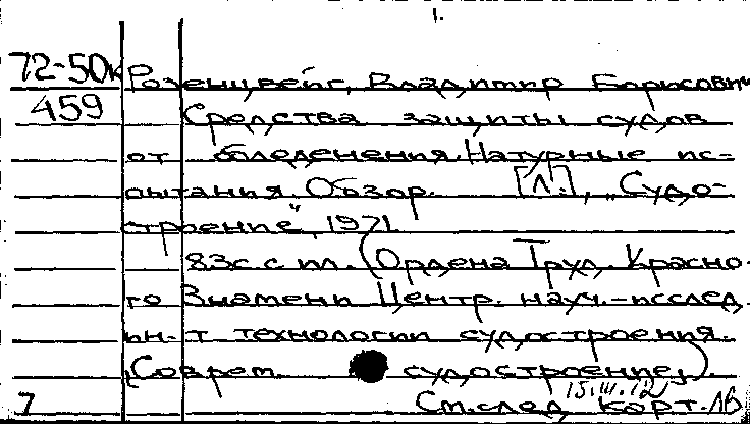 1.
72-50к Розенцвейг, Владимир Борисович
459 Средства защиты судов
от обледенения. Натурные ис-
пытания. Обзор. [Л.], „Судо-
строение", 1971.
83с. с ил. (Ордена Труд. Красно-
го Знамени Центр. науч.-исслед.
ин-т технологии судостроения.
(Соврем. судостроение)
15.III.72
7 См.след. карт.